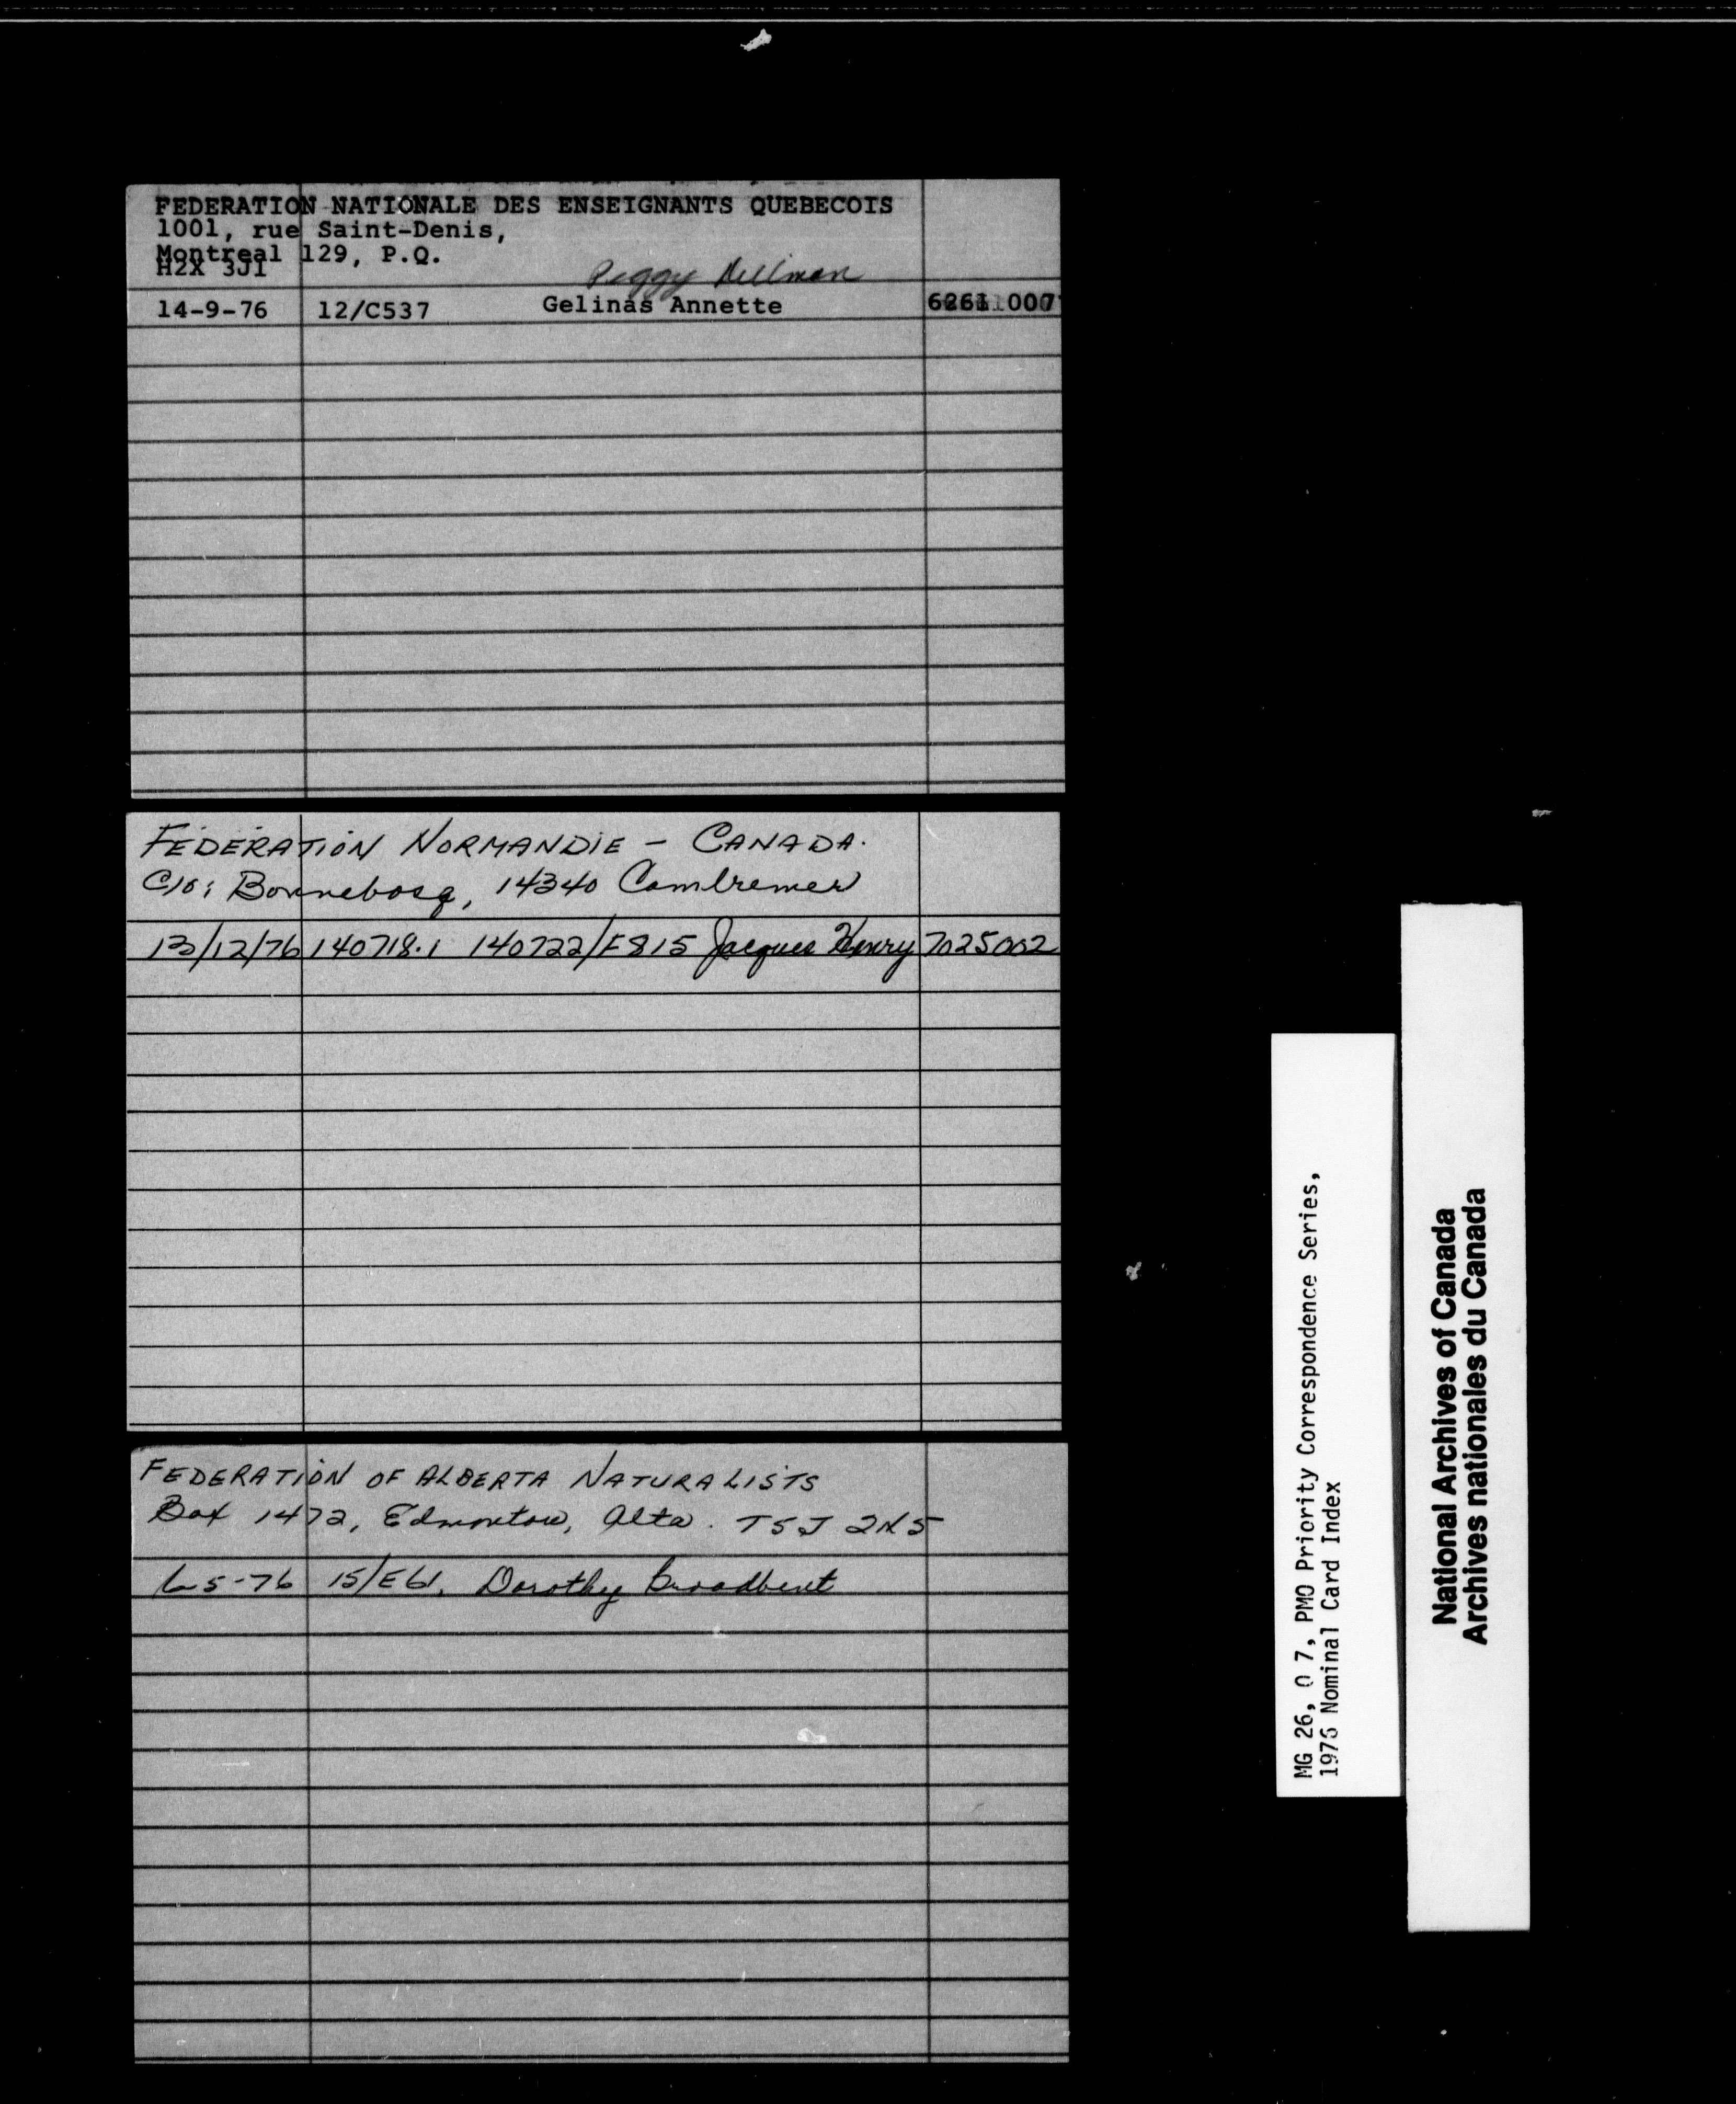 FEDERATION NATIONALE DES ENSEIGNANTS QUEBECOIS
1001, rue Saint-Denis,
Montreal 129, P.Q.
H2X 3J1
Peggy
14-9-76 12/C537 Gelinas Annette
FÉDÉRATION NORMANDIE - CANADA.
C/o: Bonnebosq, 14340 Cambremer
13/12/76 140718.1 140722/F815 Jacques Henry 7025002
FEDERATION OF ALBERTA NATURALISTS
Box 1472, Edmonton, Alta. T5J 2N5
6-5-76 15/E61, Dorothy Broadbent
MG 26, O 7, PMO Priority Correspondence Series,
1976 Nominal Card Index
National Archives of Canada
Archives nationales du Canada